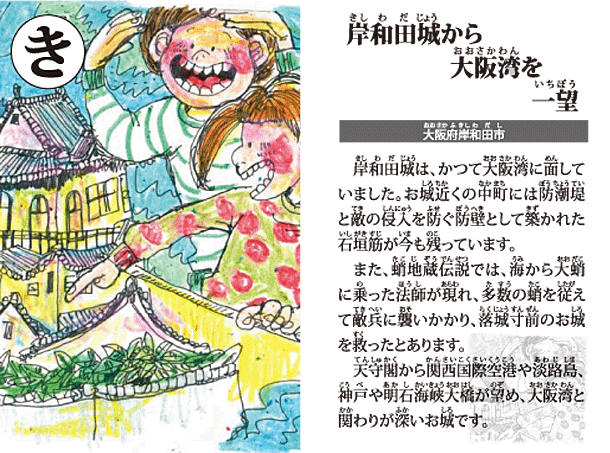 き
岸和田城から
大阪湾を
一望
大阪府岸和田市
岸和田城は、かつて大阪湾に面して
いました。お城近くの中町には防潮堤
と敵の侵入を防ぐ防壁として築かれた
石垣筋が今も残っています。
また、蛸地蔵伝説では、海から大蛸
に乗った法師が現れ、多数の蛸を従え
て敵兵に襲いかかり、落城寸前のお城
を救ったとあります。
天守閣から関西国際空港や淡路島、
神戸や明石海峡大橋が望め、大阪湾と
関わりが深いお城です。